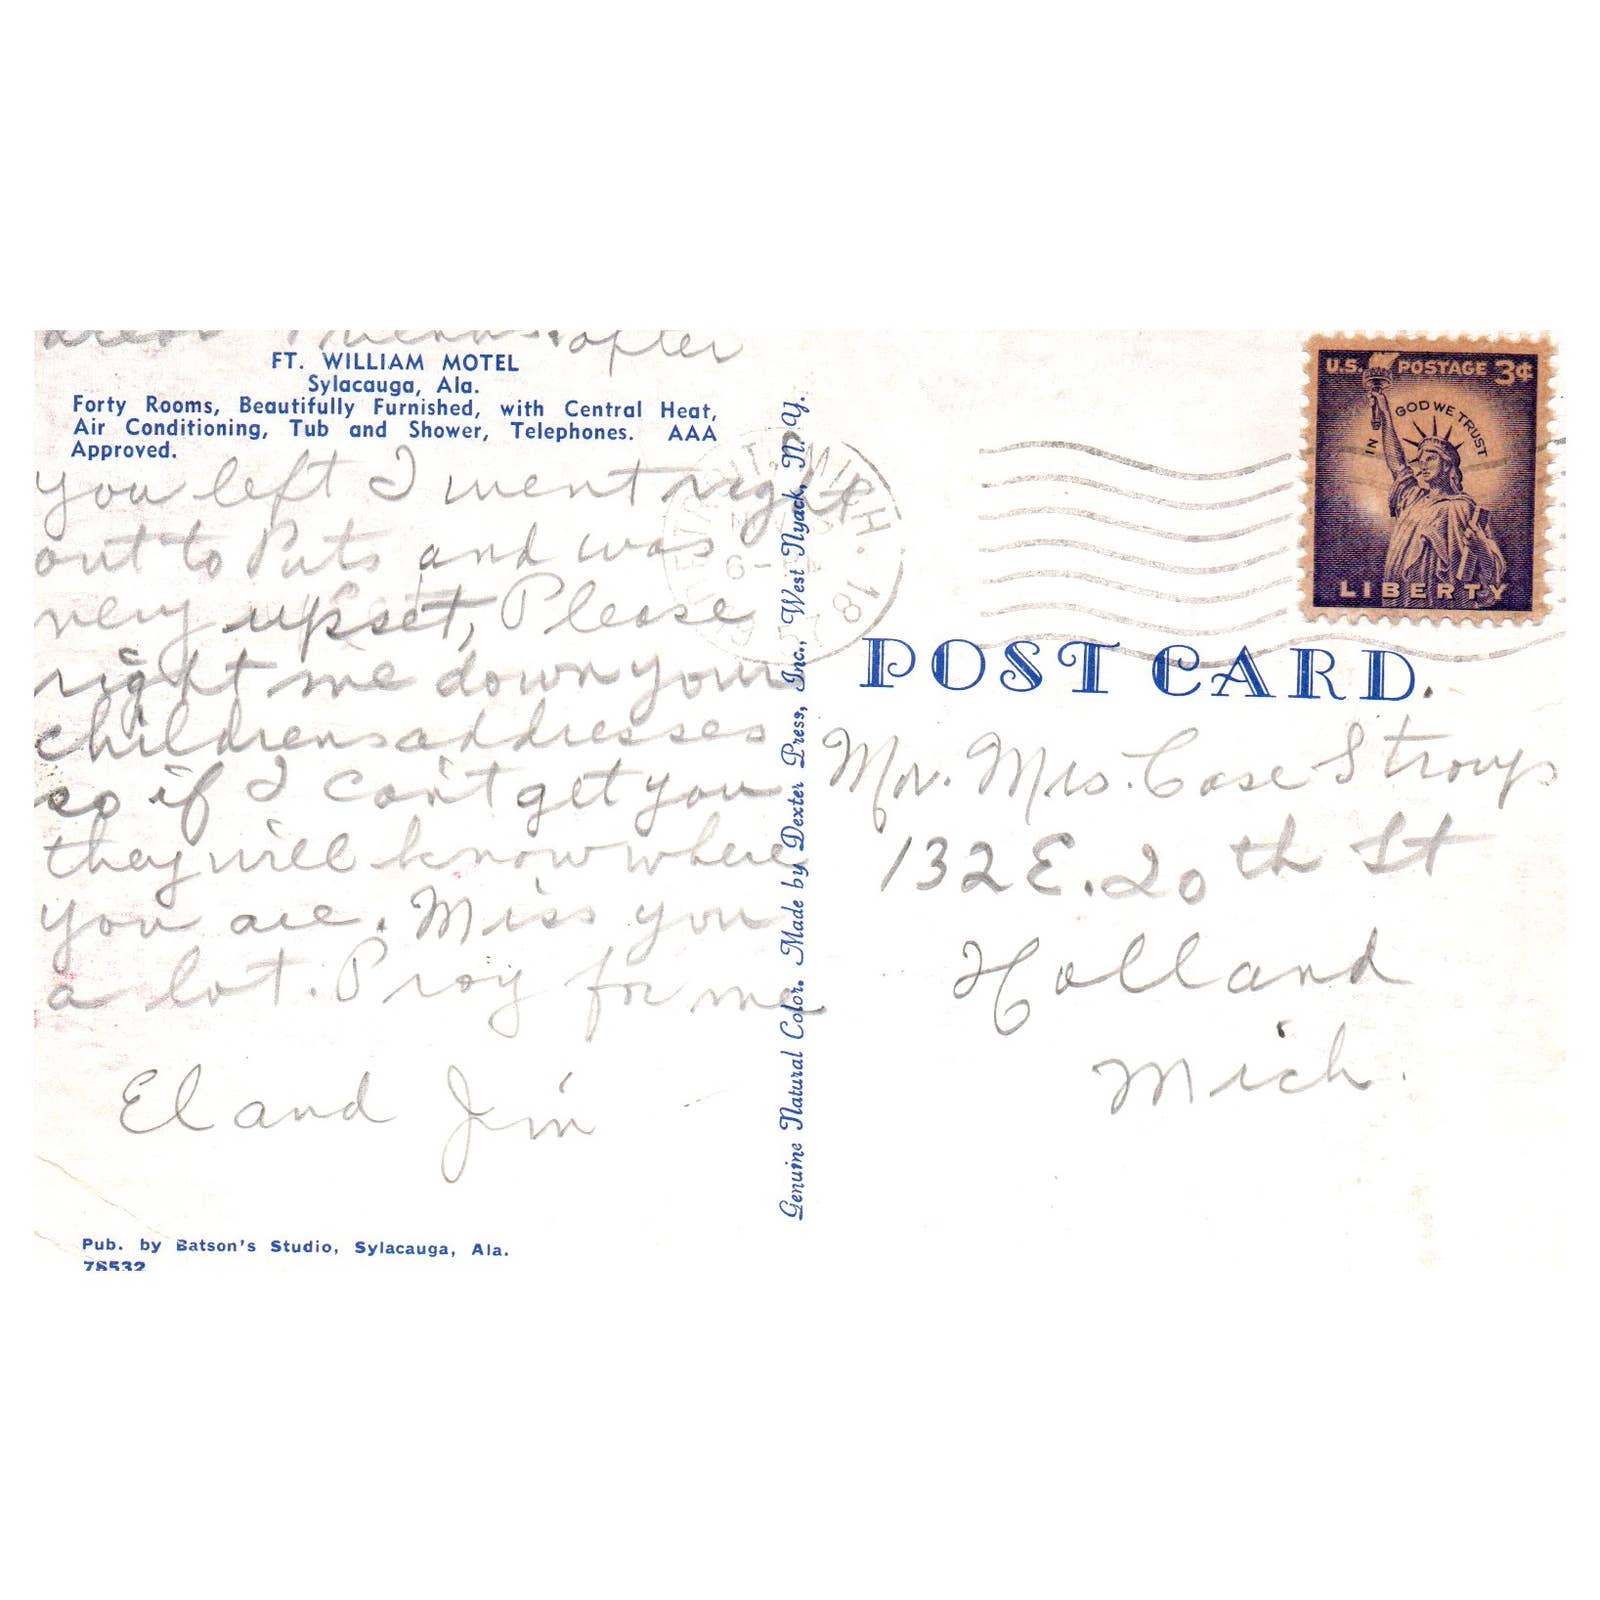 dear Friends. after
FT. WILLIAM MOTEL
Sylacauga, Ala.
Forty Rooms, Beautifully Furnished, with Central Heat,
Air Conditioning, Tub and Shower, Telephones. AAA
Approved.
you left I went right
out to Pats and was
very upset, Please
right me down your
childrens addresses
so if I can't get you
they will know where
you are. Miss you
a lot. Pray for me
El and Jim
Pub. by Batson's Studio, Sylacauga, Ala.
78532
Genuine Natural Color. Made by Dexter Press, Inc., West Nyack, N. Y.
MICH. 18
U.S. POSTAGE 3¢
IN GOD WE TRUST
LIBERTY
POST CARD.
Mr. Mrs. Case Stroup
132 E. 20 th St
Holland
Mich.